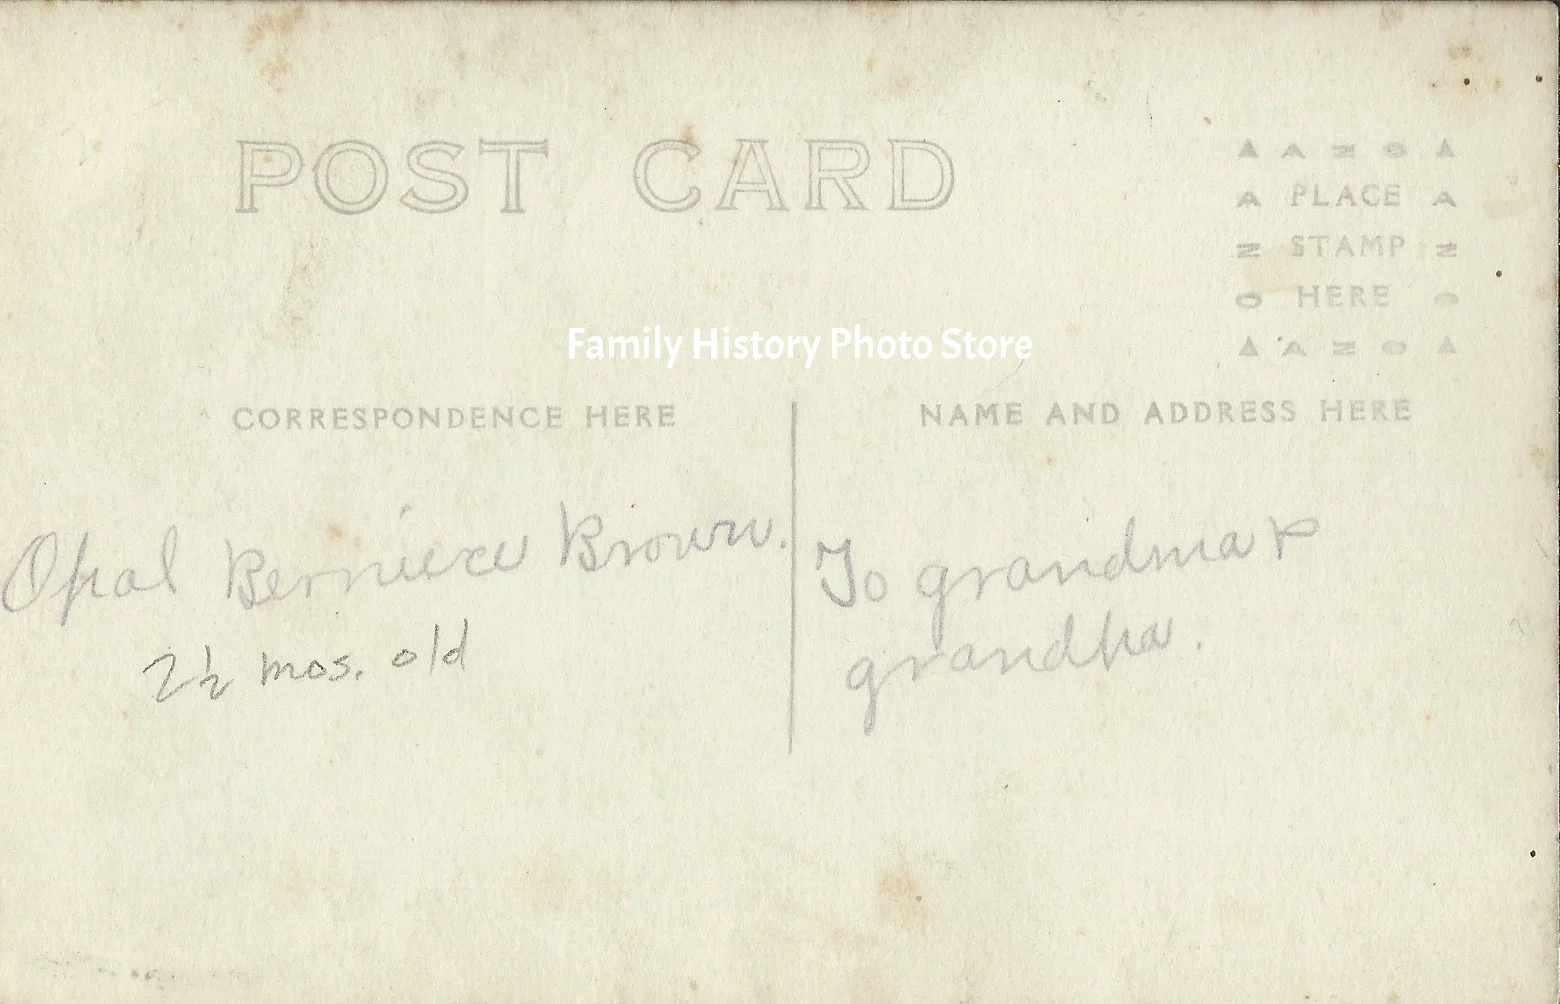 POST CARD
▲ A Z O ▲
A PLACE A
Z STAMP Z
O HERE O
▲ A Z O ▲
Family History Photo Store
CORRESPONDENCE HERE
NAME AND ADDRESS HERE
Opal Berniece Brown.
2½ mos. old
To grandma &
grandpa.